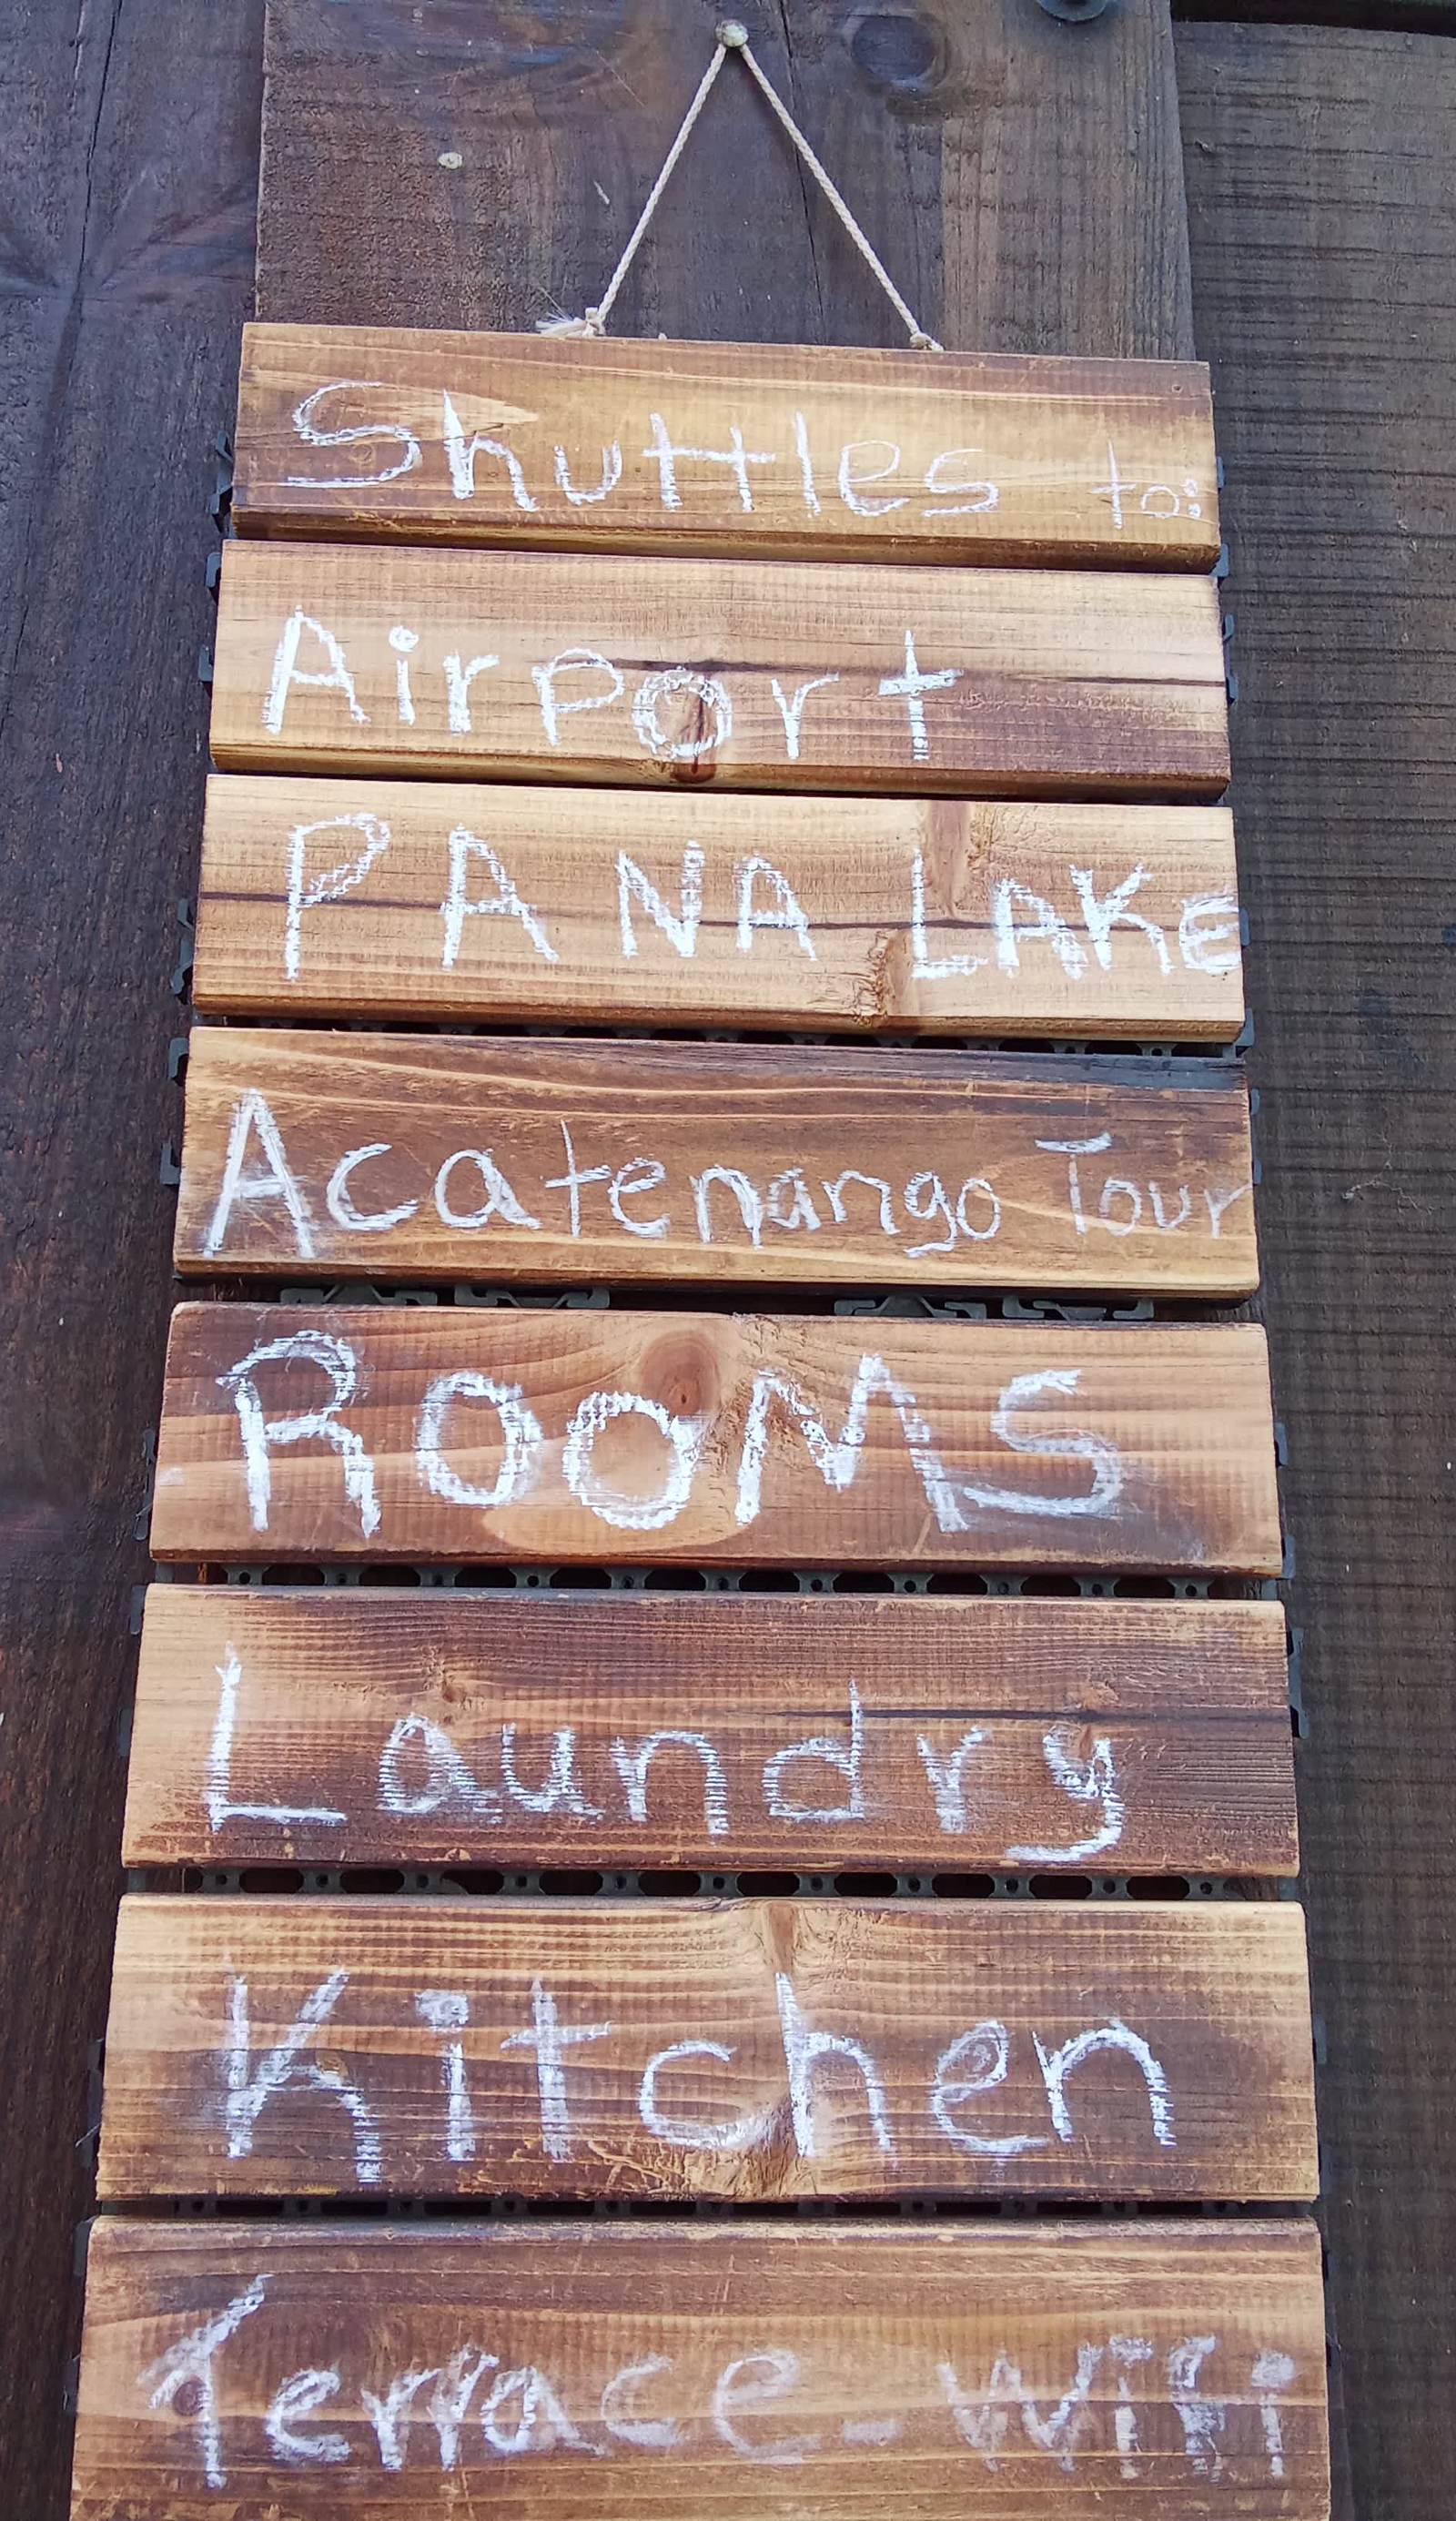 Shuttles to:
Airport
PANA LAKE
Acatenango Tour
ROOMS
Laundry
Kitchen
Terrace - Wifi